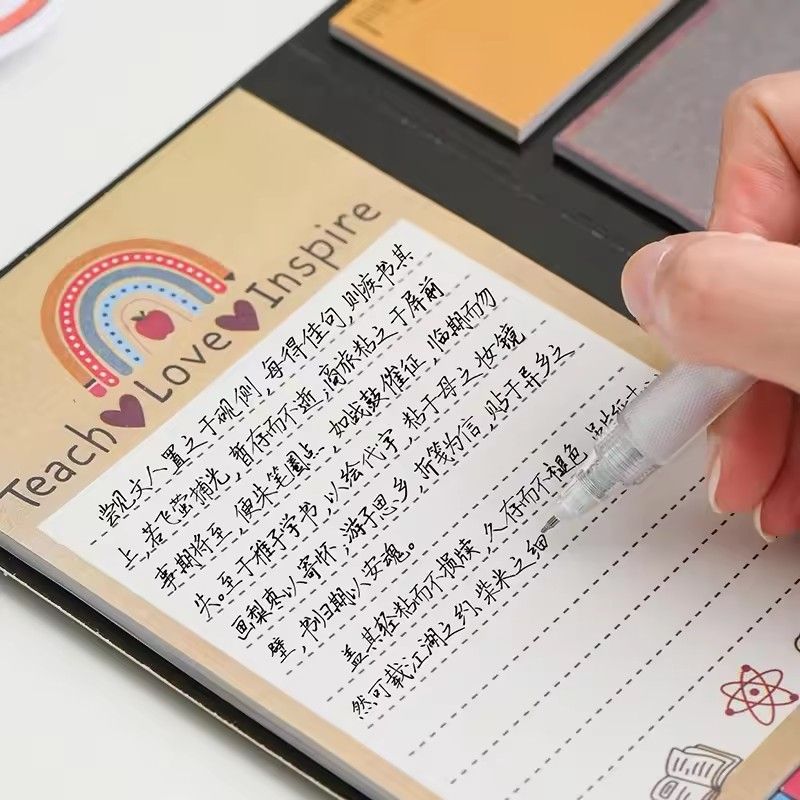 Teach Love Inspire
尝见文人置之于砚侧,每得佳句,则疾书其
上,若飞萤捕光,暂存而不逝,商旅粘之于屏前
事期将至,便朱笔圈点,如战鼓催征,临期而勿
失。至于稚子学书,以绘代字,粘于母之妆镜
画梨枣以寄怀,游子思乡,折笺为信,贴于异乡之
壁,书归期以安魂。
盖其轻粘而不损牍,久存而不褪色,
然可载江湖之约,柴米之细